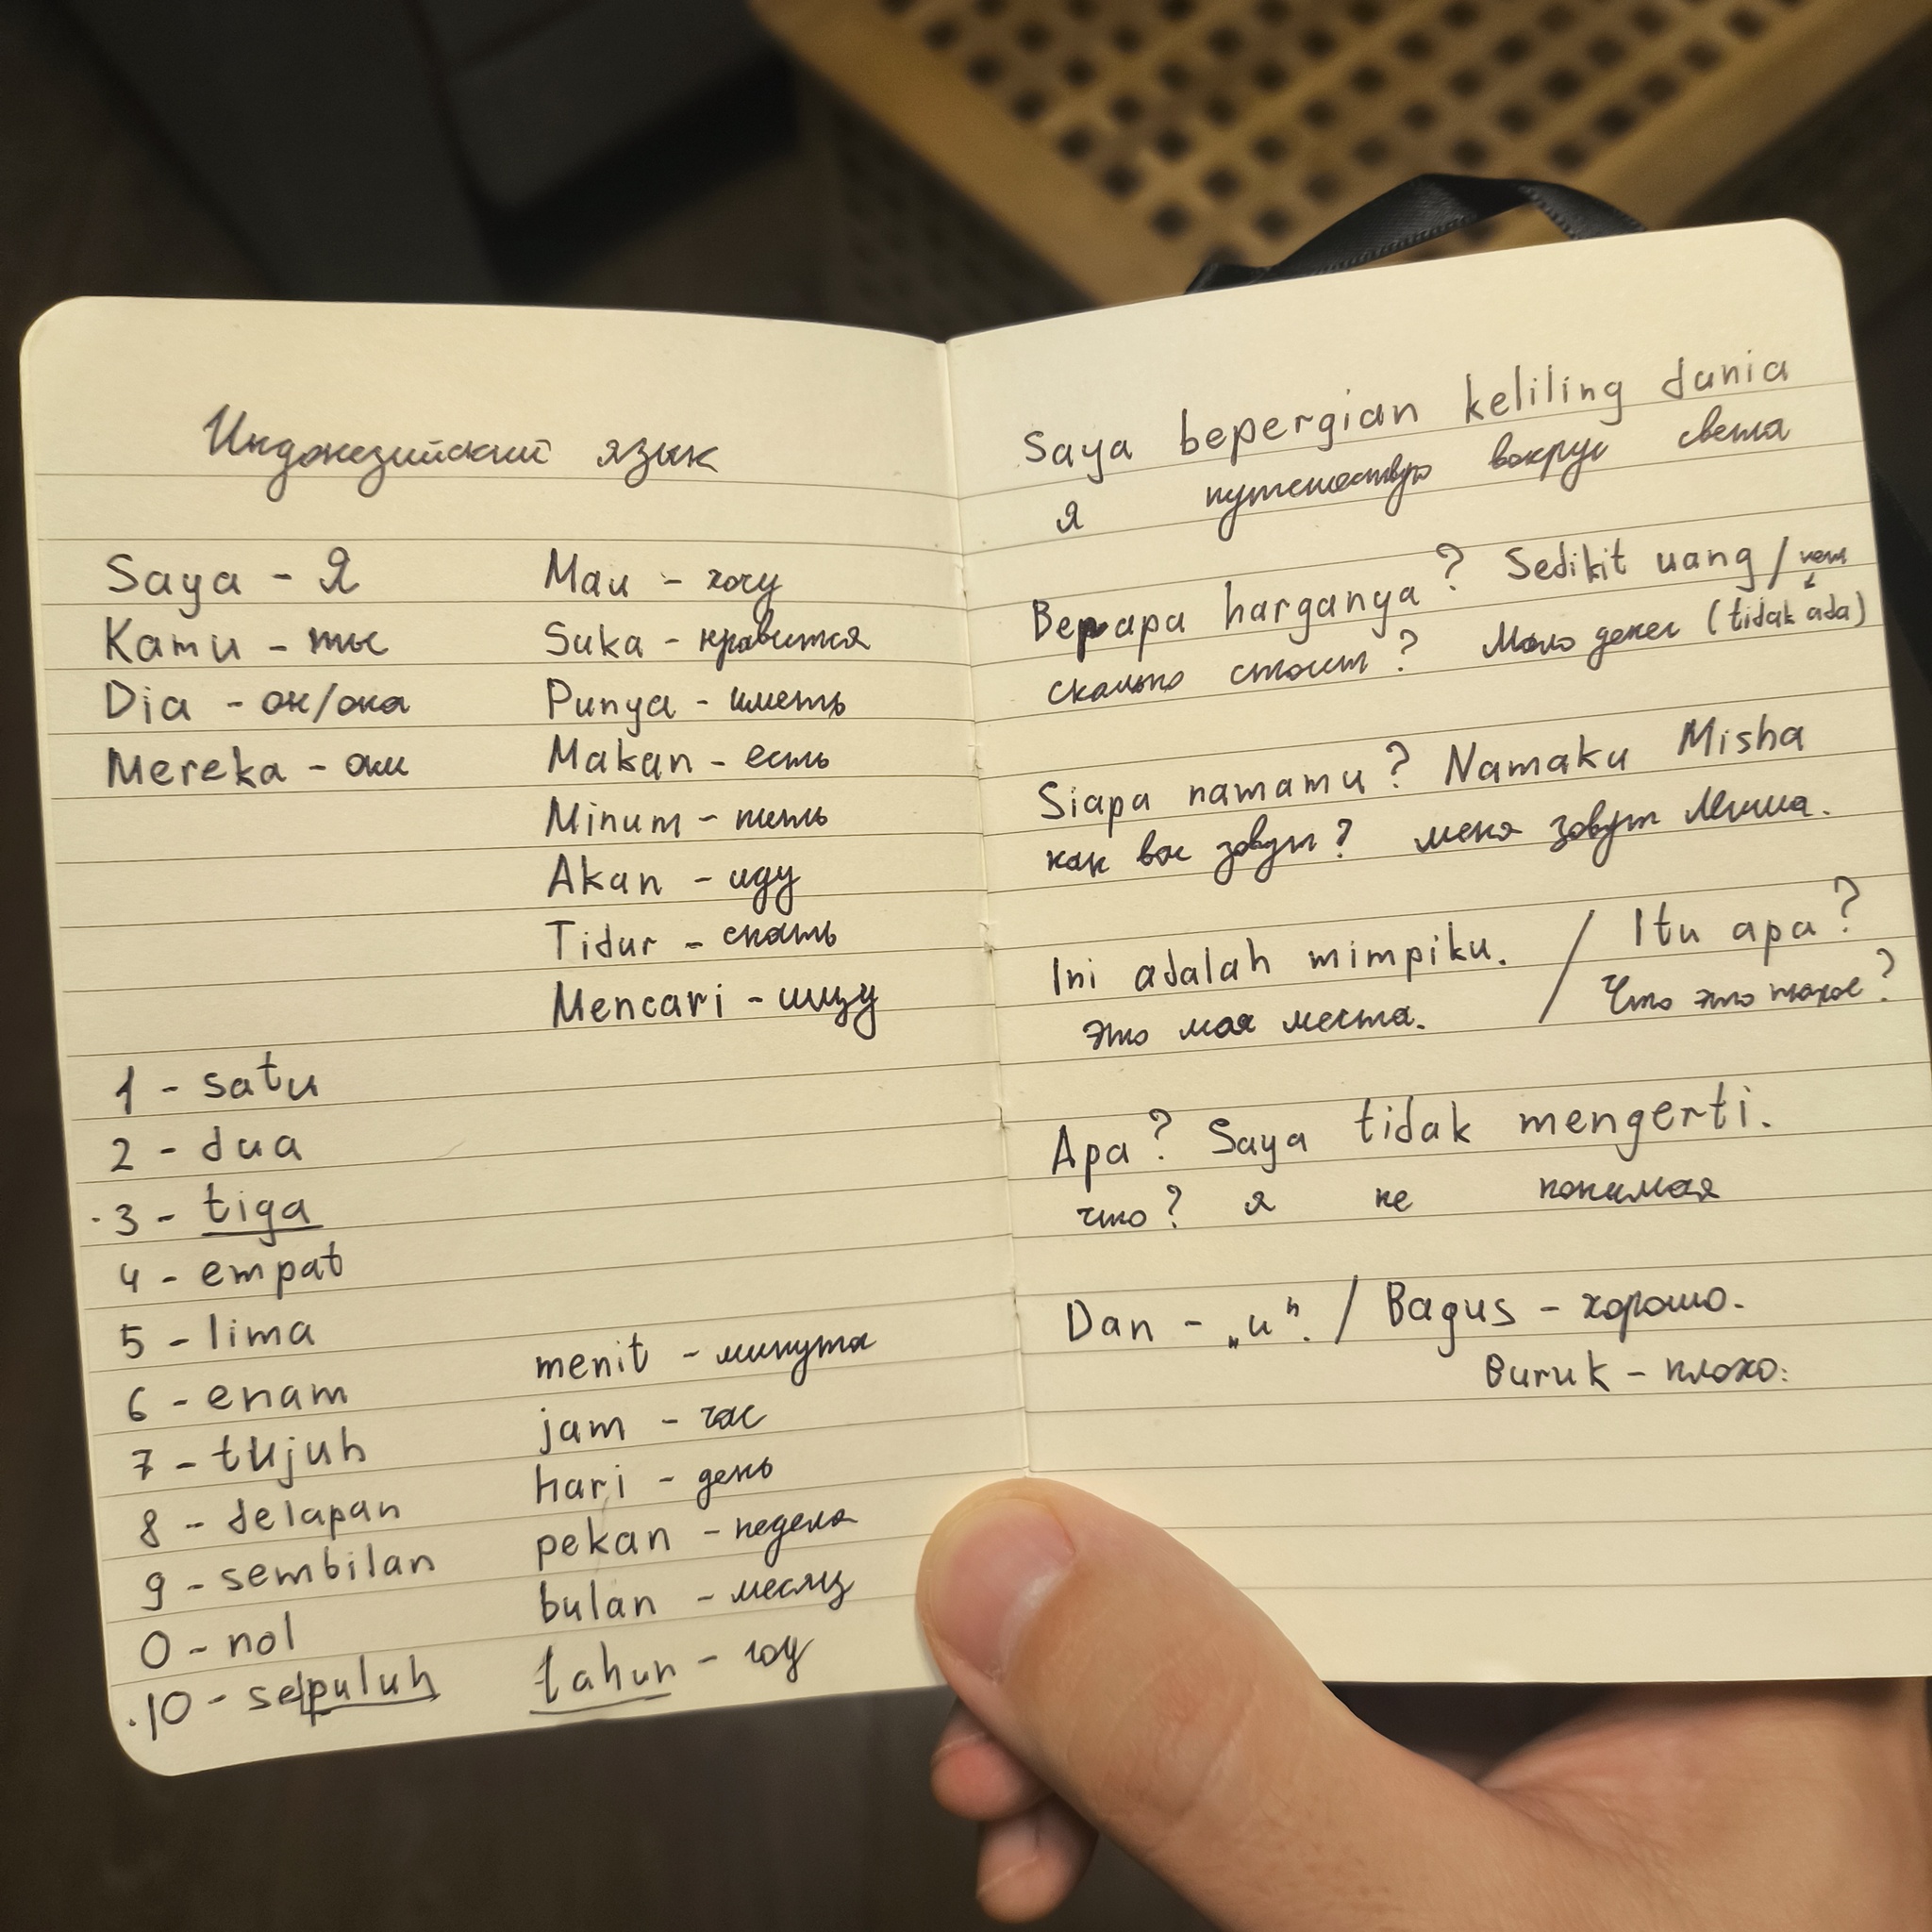 Индонезийский язык
Saya - Я
Kamu - ты
Dia - он/она
Mereka - они
Mau - хочу
Suka - нравится
Punya - иметь
Makan - есть
Minum - пить
Akan - иду
Tidur - спать
Mencari - ищу
1 - satu
2 - dua
3 - tiga
4 - empat
5 - lima
6 - enam
7 - tujuh
8 - delapan
9 - sembilan
0 - nol
10 - sepuluh
menit - минута
jam - час
hari - день
pekan - неделя
bulan - месяц
tahun - год
Saya bepergian keliling dunia
я путешествую вокруг света
Berapa harganya? Sedikit uang / нет
сколько стоит? Мало денег (tidak ada)
Siapa namamu? Namaku Misha
как вас зовут? меня зовут Миша.
Ini adalah mimpiku. / Itu apa?
Это моя мечта. Что это такое?
Apa? Saya tidak mengerti.
что? я не понимая
Dan - „и". / Bagus - хорошо.
Buruk - плохо.